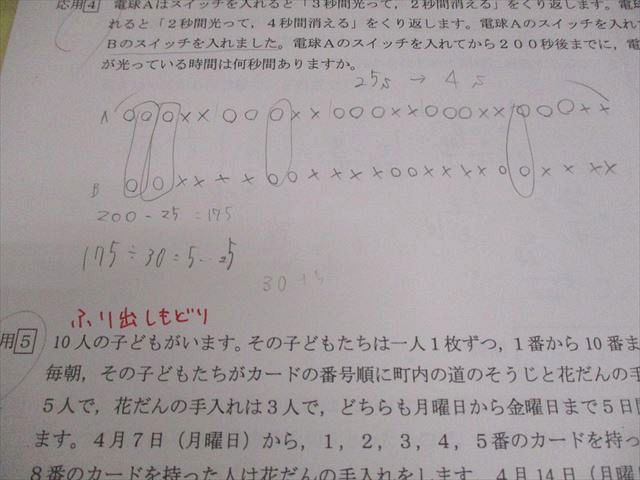 応用4 電球Aはスイッチを入れると「3秒間光って,2秒間消える」をくり返します。電球
れると「2秒間光って,4秒間消える」をくり返します。電球Aのスイッチを入れて
Bのスイッチを入れました。電球Aのスイッチを入れてから200秒後までに,電
が光っている時間は何秒間ありますか。
25s → 4s
A ○○○×× ○○○×× ○○○××○○○×× ○○○××
B ○○××××○○××××○○××××○○××××
200 - 25 = 175
175 ÷ 30 = 5…25
ふり出しもどり
用5 10人の子どもがいます。その子どもたちは一人1枚ずつ,1番から10番ま
毎朝,その子どもたちがカードの番号順に町内の道のそうじと花だんの手
5人で,花だんの手入れは3人で,どちらも月曜日から金曜日まで5日
ます。4月7日(月曜日)から,1,2,3,4,5番のカードを持っ
8番のカードを持った人は花だんの手入れをします。4月14日(月曜